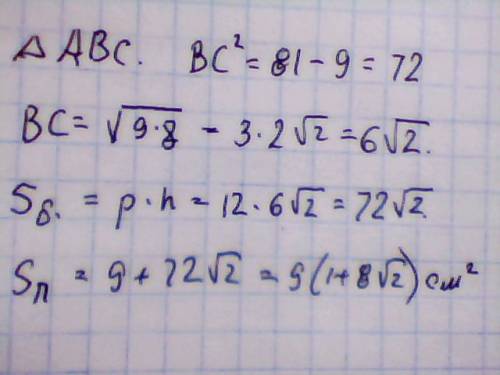 △ ABC. BC² = 81 - 9 = 72
BC = √9·8 - 3·2√2 = 6√2.
Sб. = p·h = 12·6√2 = 72√2.
Sп = 9 + 72√2 = 9(1+8√2) см²